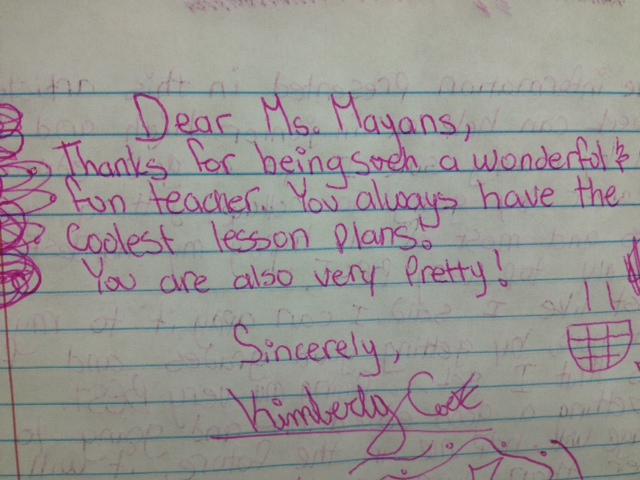 Dear Ms. Mayans,
Thanks for being such a wonderful &
fun teacher. You always have the
coolest lesson plans!
You are also very pretty!
Sincerely,
Kimberly Cook